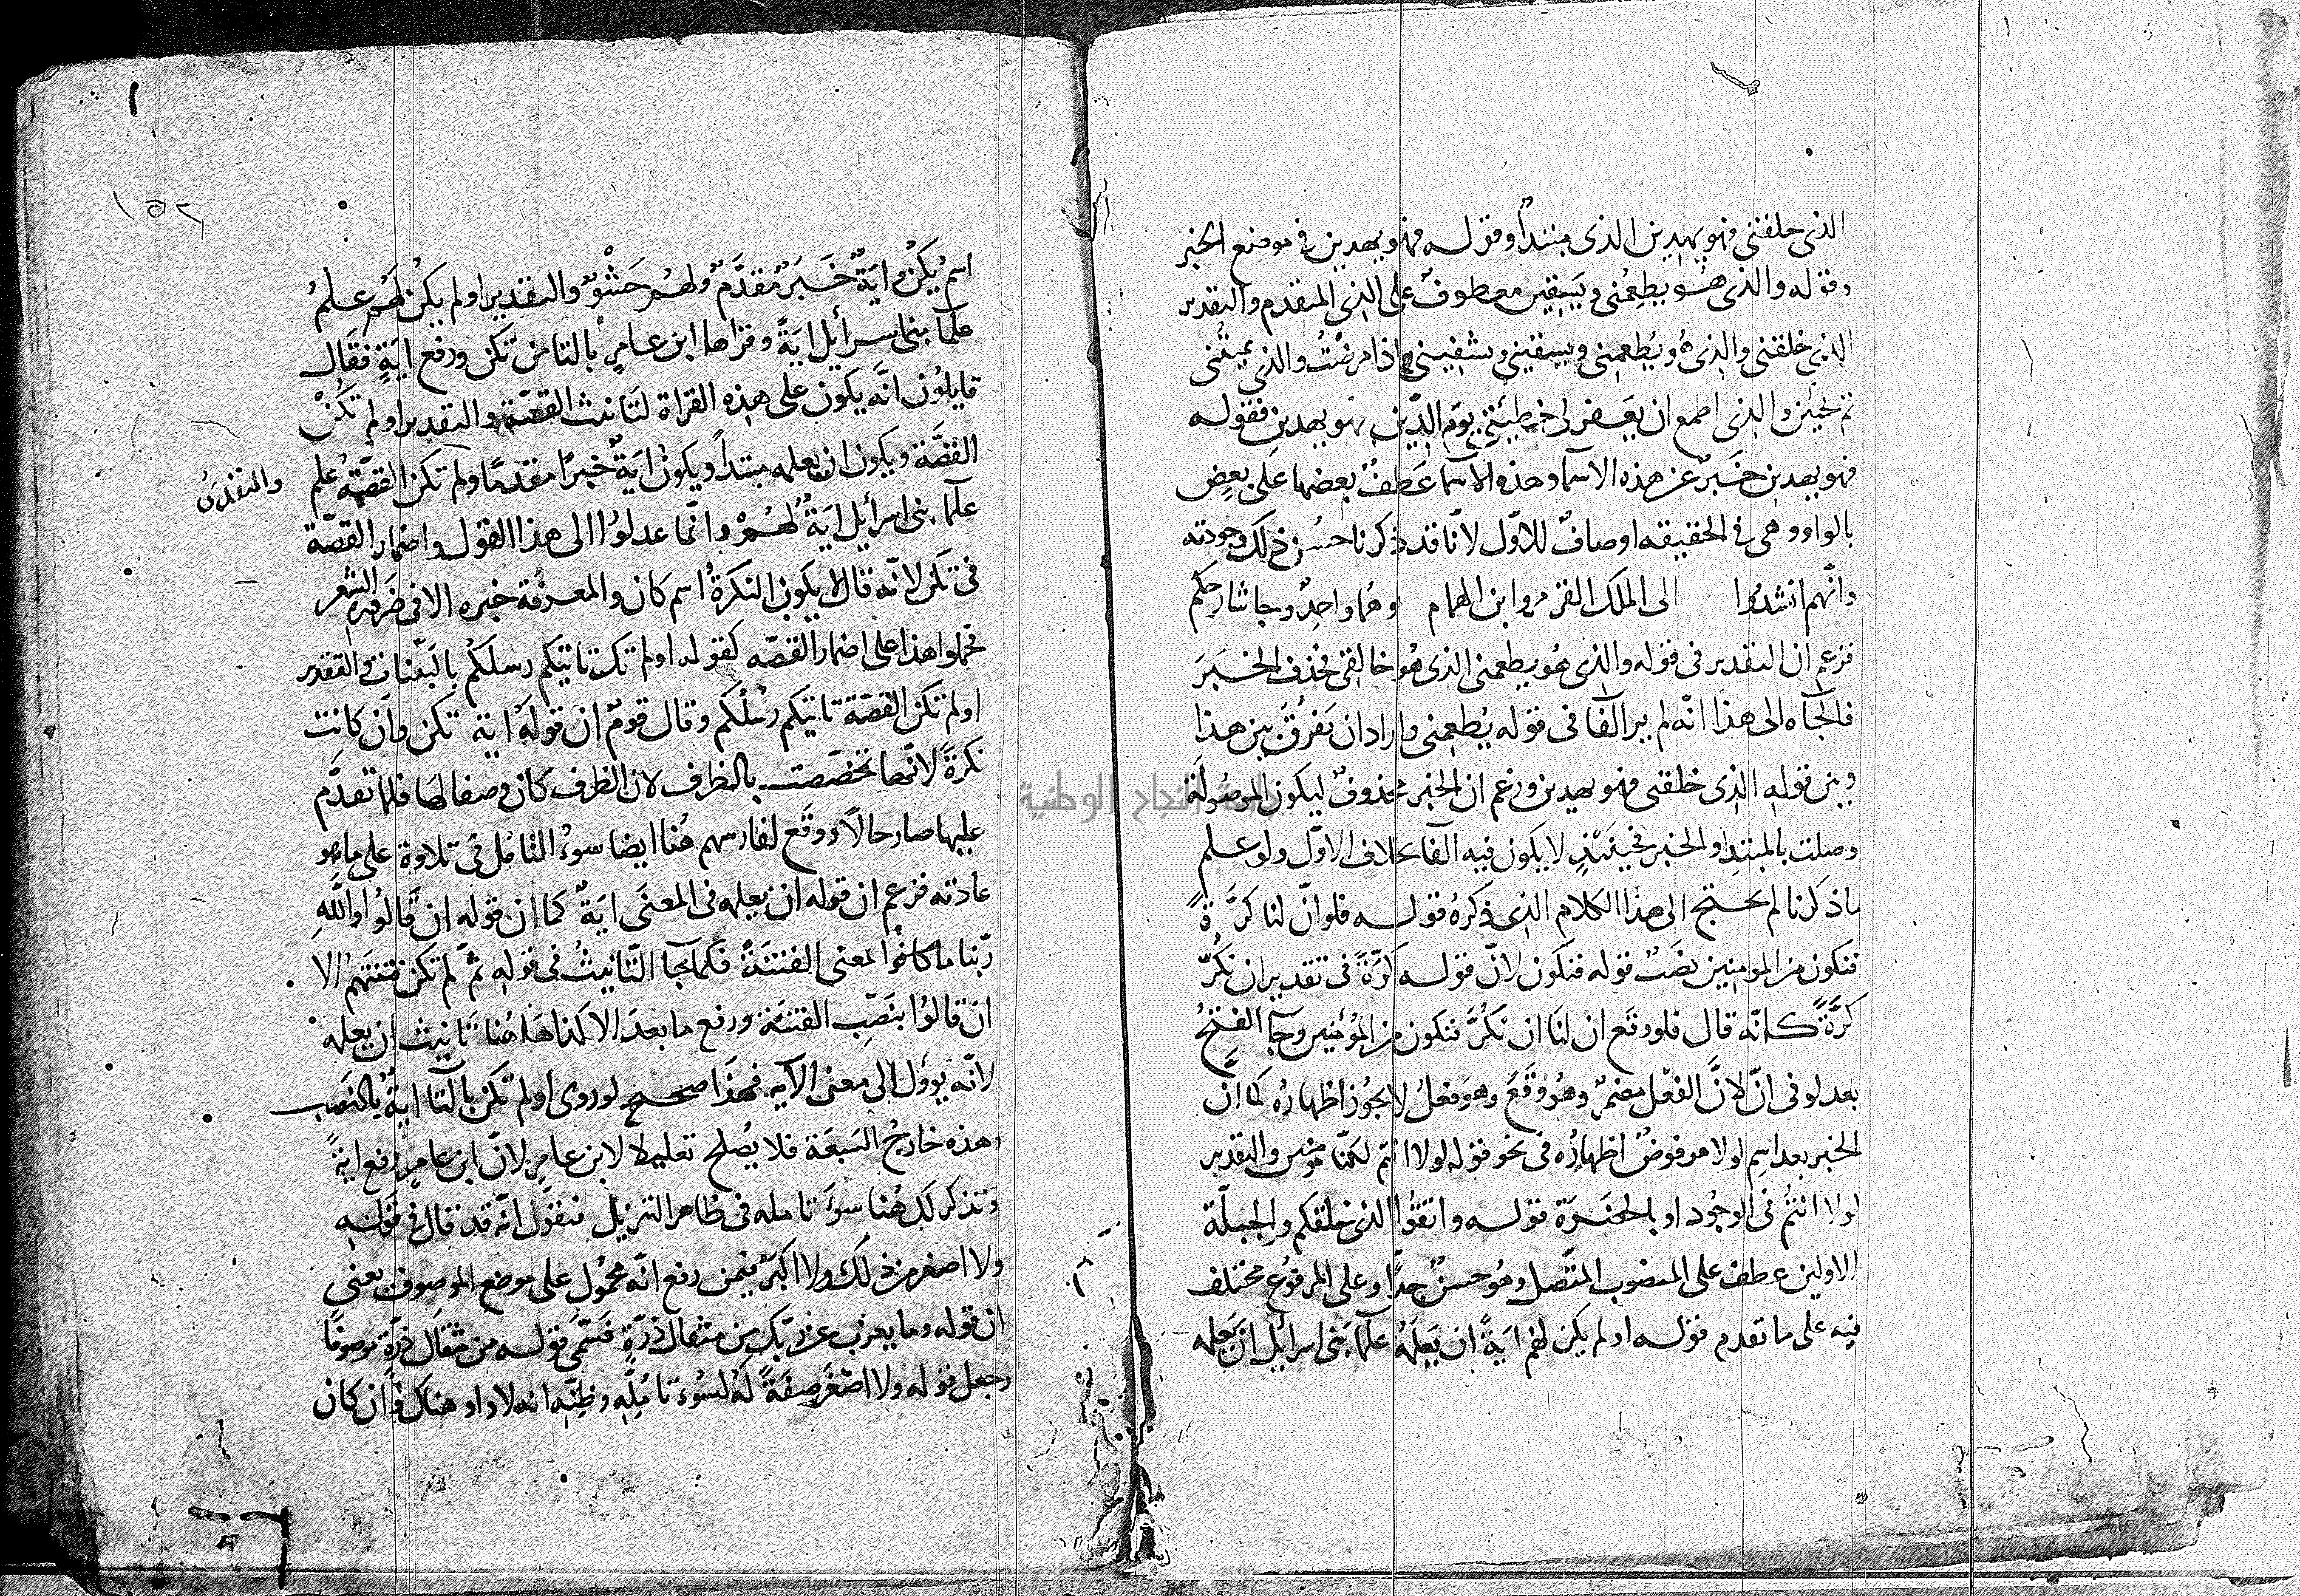 الذى خلقنى فهو يهدين الذى مبتدأ وقوله فهو يهدين فى موضع الخبر
وقوله والذى هو يطعمنى ويسقين معطوف على الذى المتقدم والتقدير
الذى خلقنى والذى هو يطعمنى ويسقين ويشفينى اذا مرضت والذى يميتنى
ثم يحيين والذى اطمع ان يغفر لى خطيئتى يوم الدين فهو يهدين فقوله
فهو يهدين خبر عن هذه الاسما وهذه الاسما عطف بعضها على بعض
بالواو وهى فى الحقيقه اوصاف للاول لانا قد ذكرنا حسن ذلك وجودته
وانهم انشدوا الى الملك القرم وابن الهمام وهما واحد وجا شارحكم
فزعم ان التقدير فى قوله والذى هو يطعمنى الذى هو خالقى فحذف الخبر
فالجاه الى هذا انه لم ير الفا فى قوله يطعمنى واراد ان يفرق بين هذا
وبين قوله الذى خلقنى فهو يهدين وزعم ان الخبر محذوف ليكون الموصولة
وصلت بالمبتدا والخبر فحينئذ لا يكون فيه الفا بخلاف الاول ولو علم
ما ذكرنا لم يحتج الى هذا الكلام الذى ذكره قوله فلو ان لنا كرة
فنكون من المومنين نصب قوله فنكون لان قوله كرة فى تقدير ان نكر
كرة كانه قال فلو وقع ان لنا ان نكر فنكون من المؤمنين وجا الفتح
بعد لو فى ان لان الفعل مضمر وهو وقع وهو فعل لا يجوز اظهاره كما ان
الخبر بعد اسم لولا مرفوض اظهاره فى نحو قوله لولا انتم لكنا مومنين والتقدير
لولا انتم فى الوجود او بالحضرة قوله واتقوا الذى خلقكم والجبلة
الاولين عطف على المنصوب المتصل وهو حسن جدا وعلى المرفوع مختلف
فيه على ما تقدم قوله اولم يكن لهم اية ان يعلمه علما بنى اسرائيل ان يعلمه
١٥٢
اسم يكن واية خبر مقدم ولهم حشو والتقدير اولم يكن لهم علم
علما بنى اسرائيل اية وقراها ابن عامر بالتا من تكن ورفع اية فقال
قايلون انه يكون على هذه القراة لتانيث القصة والتقدير اولم تكن
القصة ويكون ان يعلمه مبتدأ ويكون اية خبرا مقدما ولم تكن القصة علم
والتقدير
علما بنى اسرائيل اية لهم وانما عدلوا الى هذا القول واضمار القصة
فى تكن لانه قال لا يكون النكرة اسم كان والمعرفة خبره الا فى ضرورة الشعر
فحملوا هذا على اضمار القصه كقوله اولم تك تاتيكم رسلكم بالبينات والتقدير
اولم تكن القصة تاتيكم رسلكم وقال قوم ان قوله اية تكن وان كانت
نكرة لانها تخصصت بالظرف لان الظرف كان وصفا لها فلما تقدم
عليها صار حالا ووقع لفارسهم هنا ايضا سوء التامل فى تلاوة على ما هو
عادته فزعم ان قوله ان يعلمه فى المعنى اية كما ان قوله ان قالوا والله
ربنا ما كانوا لمعنى الفتنة فكما جا التانيث فى قوله ثم لم تكن فتنتهم الا
ان قالوا بنصب الفتنة ورفع ما بعد الا كذا هاهنا تانيث ان يعلمه
لانه يوول الى معنى الآيه فهذا صحيح لو روى اولم تكن بالتا اية بالنصب
وهذه خارج السبعة فلا يصلح تعليله لابن عامر لان ابن عامر رفع اية
ونذكر لك هنا سوء تامله فى ظاهر التنزيل فنقول انه قد قال فى قوله
ولا اصغر من ذلك ولا اكبر فيمن رفع انه محمول على موضع الموصوف يعنى
ان قوله وما يعزب عن ربك من مثقال ذرة فسمى قوله من مثقال ذرة موصوفا
وجعل قوله ولا اصغر صفة له لسوء تامله وظنه انه لا واو هناك وان كان